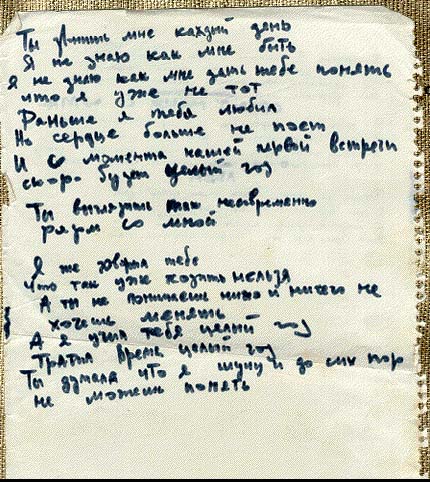 Ты мне каждый день
Я не знаю как мне быть
Я не знаю как мне дать тебе понять
что я уже не тот
Раньше я тебя любил
Но сердце больше не поет
И с момента нашей первой встречи
скоро будет целый год
Ты выглядишь так несовременно
рядом со мной
Я же говорил тебе
что так уже ходить нельзя
А ты не понимаешь ничего и ничего не
хочешь менять
А я учил тебя целый год
Тратил время целый год
Ты думала что я шучу и до сих пор
не можешь понять